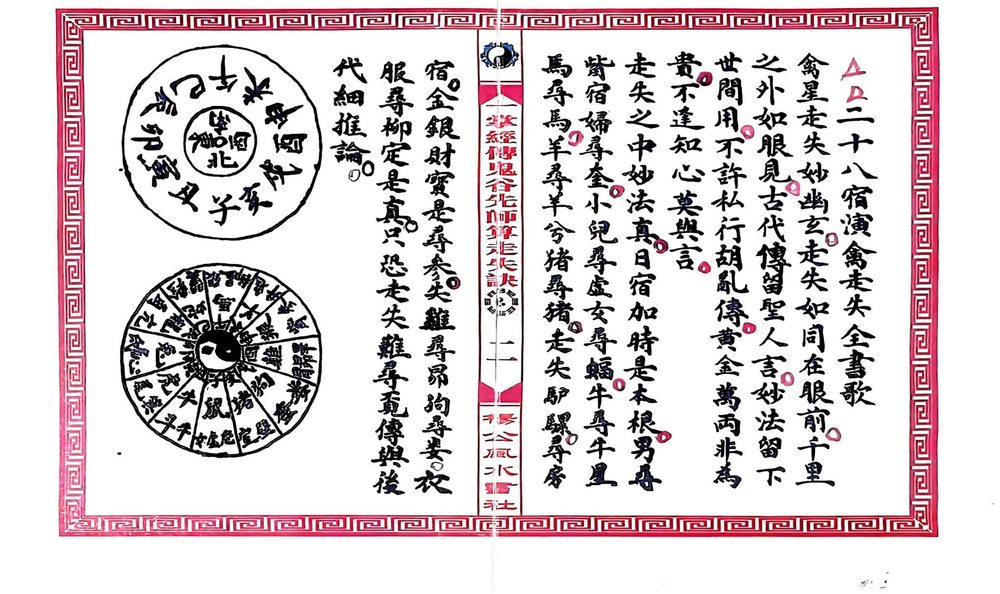 二十八宿演禽走失全書歌
禽星走失妙幽玄走失如同在眼前千里
之外如眼見古代傳留聖人言妙法留下
世間用不許私行胡亂傳黃金萬両非為
貴不達知心莫與言
走失之中妙法真日宿加時是本根男尋
觜宿婦尋奎小兒尋虛女尋蝠牛尋牛星
馬尋馬羊尋羊兮猪尋猪走失驴騾尋房
一掌經傳鬼谷先師算走失訣
二一
楊公風水書社
宿金銀財寶是尋參失雞尋昴狗尋娄衣
服尋柳定是真只恐走失難尋覓傳與後
代細推論
子丑寅卯辰巳午未申酉戌亥
南西北東
鼠牛虎兔龍蛇馬
狗猪